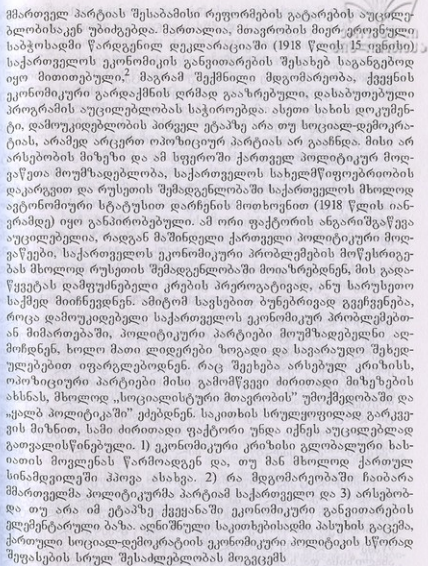 მმართველ პარტიას შესაბამისი რეფორმების გატარების აუცილე-
ბლობისაკენ უბიძგებდა. მართალია, მთავრობის მიერ ეროვნულ
საბჭოსადმი წარდგენილ დეკლარაციაში (1918 წლის 15 ივნისი)
საქართველოს ეკონომიკის განვითარების შესახებ საგანგებოდ
იყო მითითებული,2 მაგრამ შექმნილი მდგომარეობა, ქვეყნის
ეკონომიკური გარდაქმნის ღრმად გააზრებული, დასაბუთებული
პროგრამის აუცილებლობას საჭიროებდა. ასეთი სახის დოკუმენ-
ტი, დამოუკიდებლობის პირველ ეტაპზე არა თუ სოციალ-დემოკრა-
ტიას, არამედ არცერთ ოპოზიციურ პარტიას არ გააჩნდა. მისი არ
არსებობის მიზეზი და ამ სფეროში ქართველ პოლიტიკურ მოღ-
ვაწეთა მოუმზადებლობა, საქართველოს სახელმწიფოებრიობის
დაკარგვით და რუსეთის შემადგენლობაში საქართველოს მხოლოდ
ავტონომიური სტატუსით დარჩენის მოთხოვნით (1918 წლის იან-
ვრამდე) იყო განპირობებული. ამ ორი ფაქტორის ანგარიშგაწევა
აუცილებელია, რადგან მაშინდელი ქართველი პოლიტიკური მოღ-
ვაწეები, საქართველოს ეკონომიკური პრობლემების მოწესრიგე-
ბას მხოლოდ რუსეთის შემადგენლობაში მოიაზრებდნენ, მის გადა-
წყვეტას დამფუძნებელი კრების პრეროგატივად, ანუ სარუსეთო
საქმედ მიიჩნევდნენ. ამიტომ სავსებით ბუნებრივად გვეჩვენება,
როცა დამოუკიდებელი საქართველოს ეკონომიკურ პრობლემებთ-
ან მიმართებაში, პოლიტიკური პარტიები მოუმზადებელნი აღ-
მოჩდნენ, ხოლო მათი ლიდერები ზოგადი და სავარაუდო შეხედ-
ულებებით იფარგლებოდნენ. რაც შეეხება არსებულ კრიზისს,
ოპოზიციური პარტიები მისი გამომწვევი ძირითადი მიზეზების
ახსნას, მხოლოდ „სოციალისტური მთავრობის" უმოქმედობაში და
„ყალბ პოლიტიკაში" ეძებდნენ. საკითხის სრულყოფილად გარკვე-
ვის მიზნით, სამი ძირითადი ფაქტორი უნდა იქნეს აუცილებლად
გათვალისწინებული. 1) ეკონომიკური კრიზისი გლობალური ხას-
იათის მოვლენას წარმოადგენ და, თუ მან მხოლოდ ქართულ
სინამდვილეში ჰპოვა ასახვა. 2) რა მდგომარეობაში ჩაიბარა
მმართველმა პოლიტიკურმა პარტიამ საქართველო და 3) არსებობ-
და თუ არა იმ ეტაპზე ქვეყანაში ეკონომიკური განვითარების
ელემენტარული ბაზა. აღნიშნული საკითხებისადმი პასუხის გაცემა,
ქართული სოციალ-დემოკრატიის ეკონომიკური პოლიტიკის სწორად
შეფასების სრულ შესაძლებლობას მოგვცემს